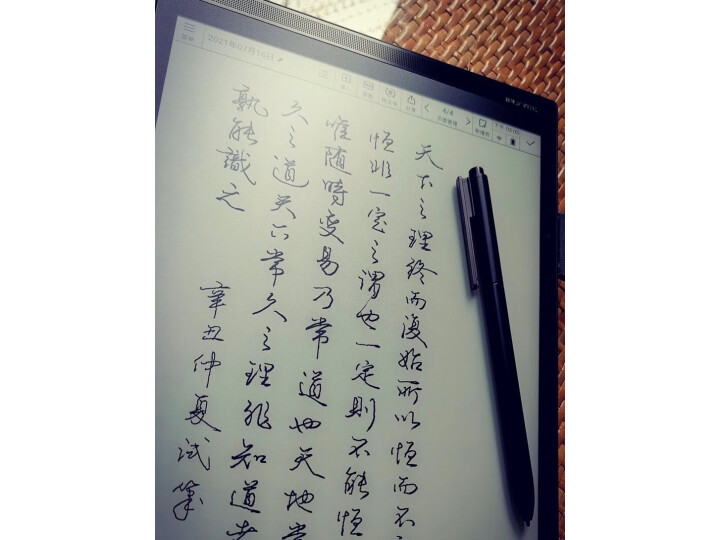 2021年07月16日
分享
4/4
天下之理终而復始所以恒而不
恒非一定之謂也一定則不能恒
唯随時變易乃常道也天地常
久之道天下常久之理非知道者
孰能識之
辛丑仲夏试筆